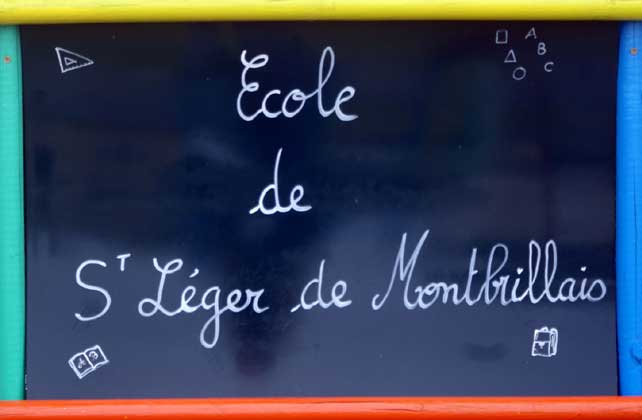 A
B
C
Ecole
de
Sᵀ Léger de Montbrillais